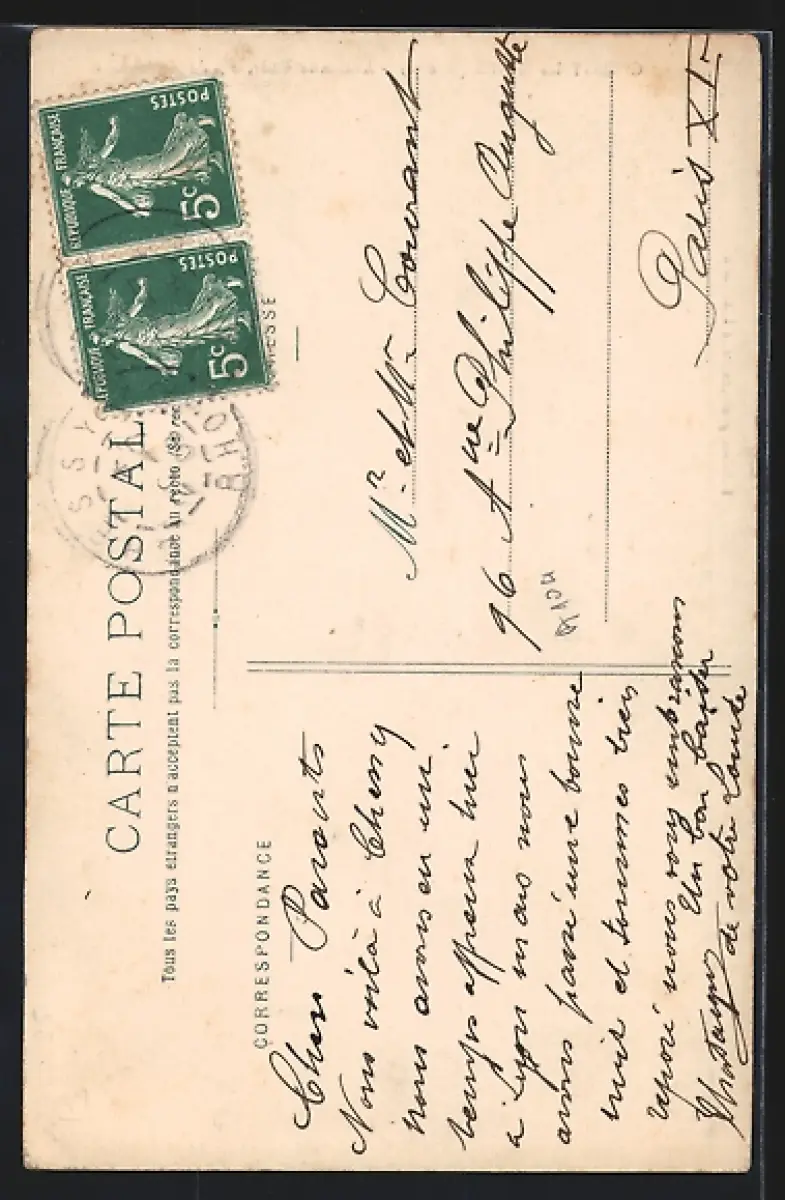 CARTE POSTALE
Tous les pays étrangers n'acceptent pas la correspondance au recto (Se
CORRESPONDANCE
Chers Parents
Nous voilà à Chessy
nous avons eu un
temps affreux hier
à Lyon mais nous
avons passé une bonne
nuit et sommes bien
reposé nous vous embrassons
Un bon baiser
de votre Louise
ESSE
Mr et Mme Courant
96 Aue Philippe Auguste
Paris XI
POSTES
RÉPUBLIQUE FRANÇAISE
5c
POSTES
RÉPUBLIQUE FRANÇAISE
5c
SSY
RHO